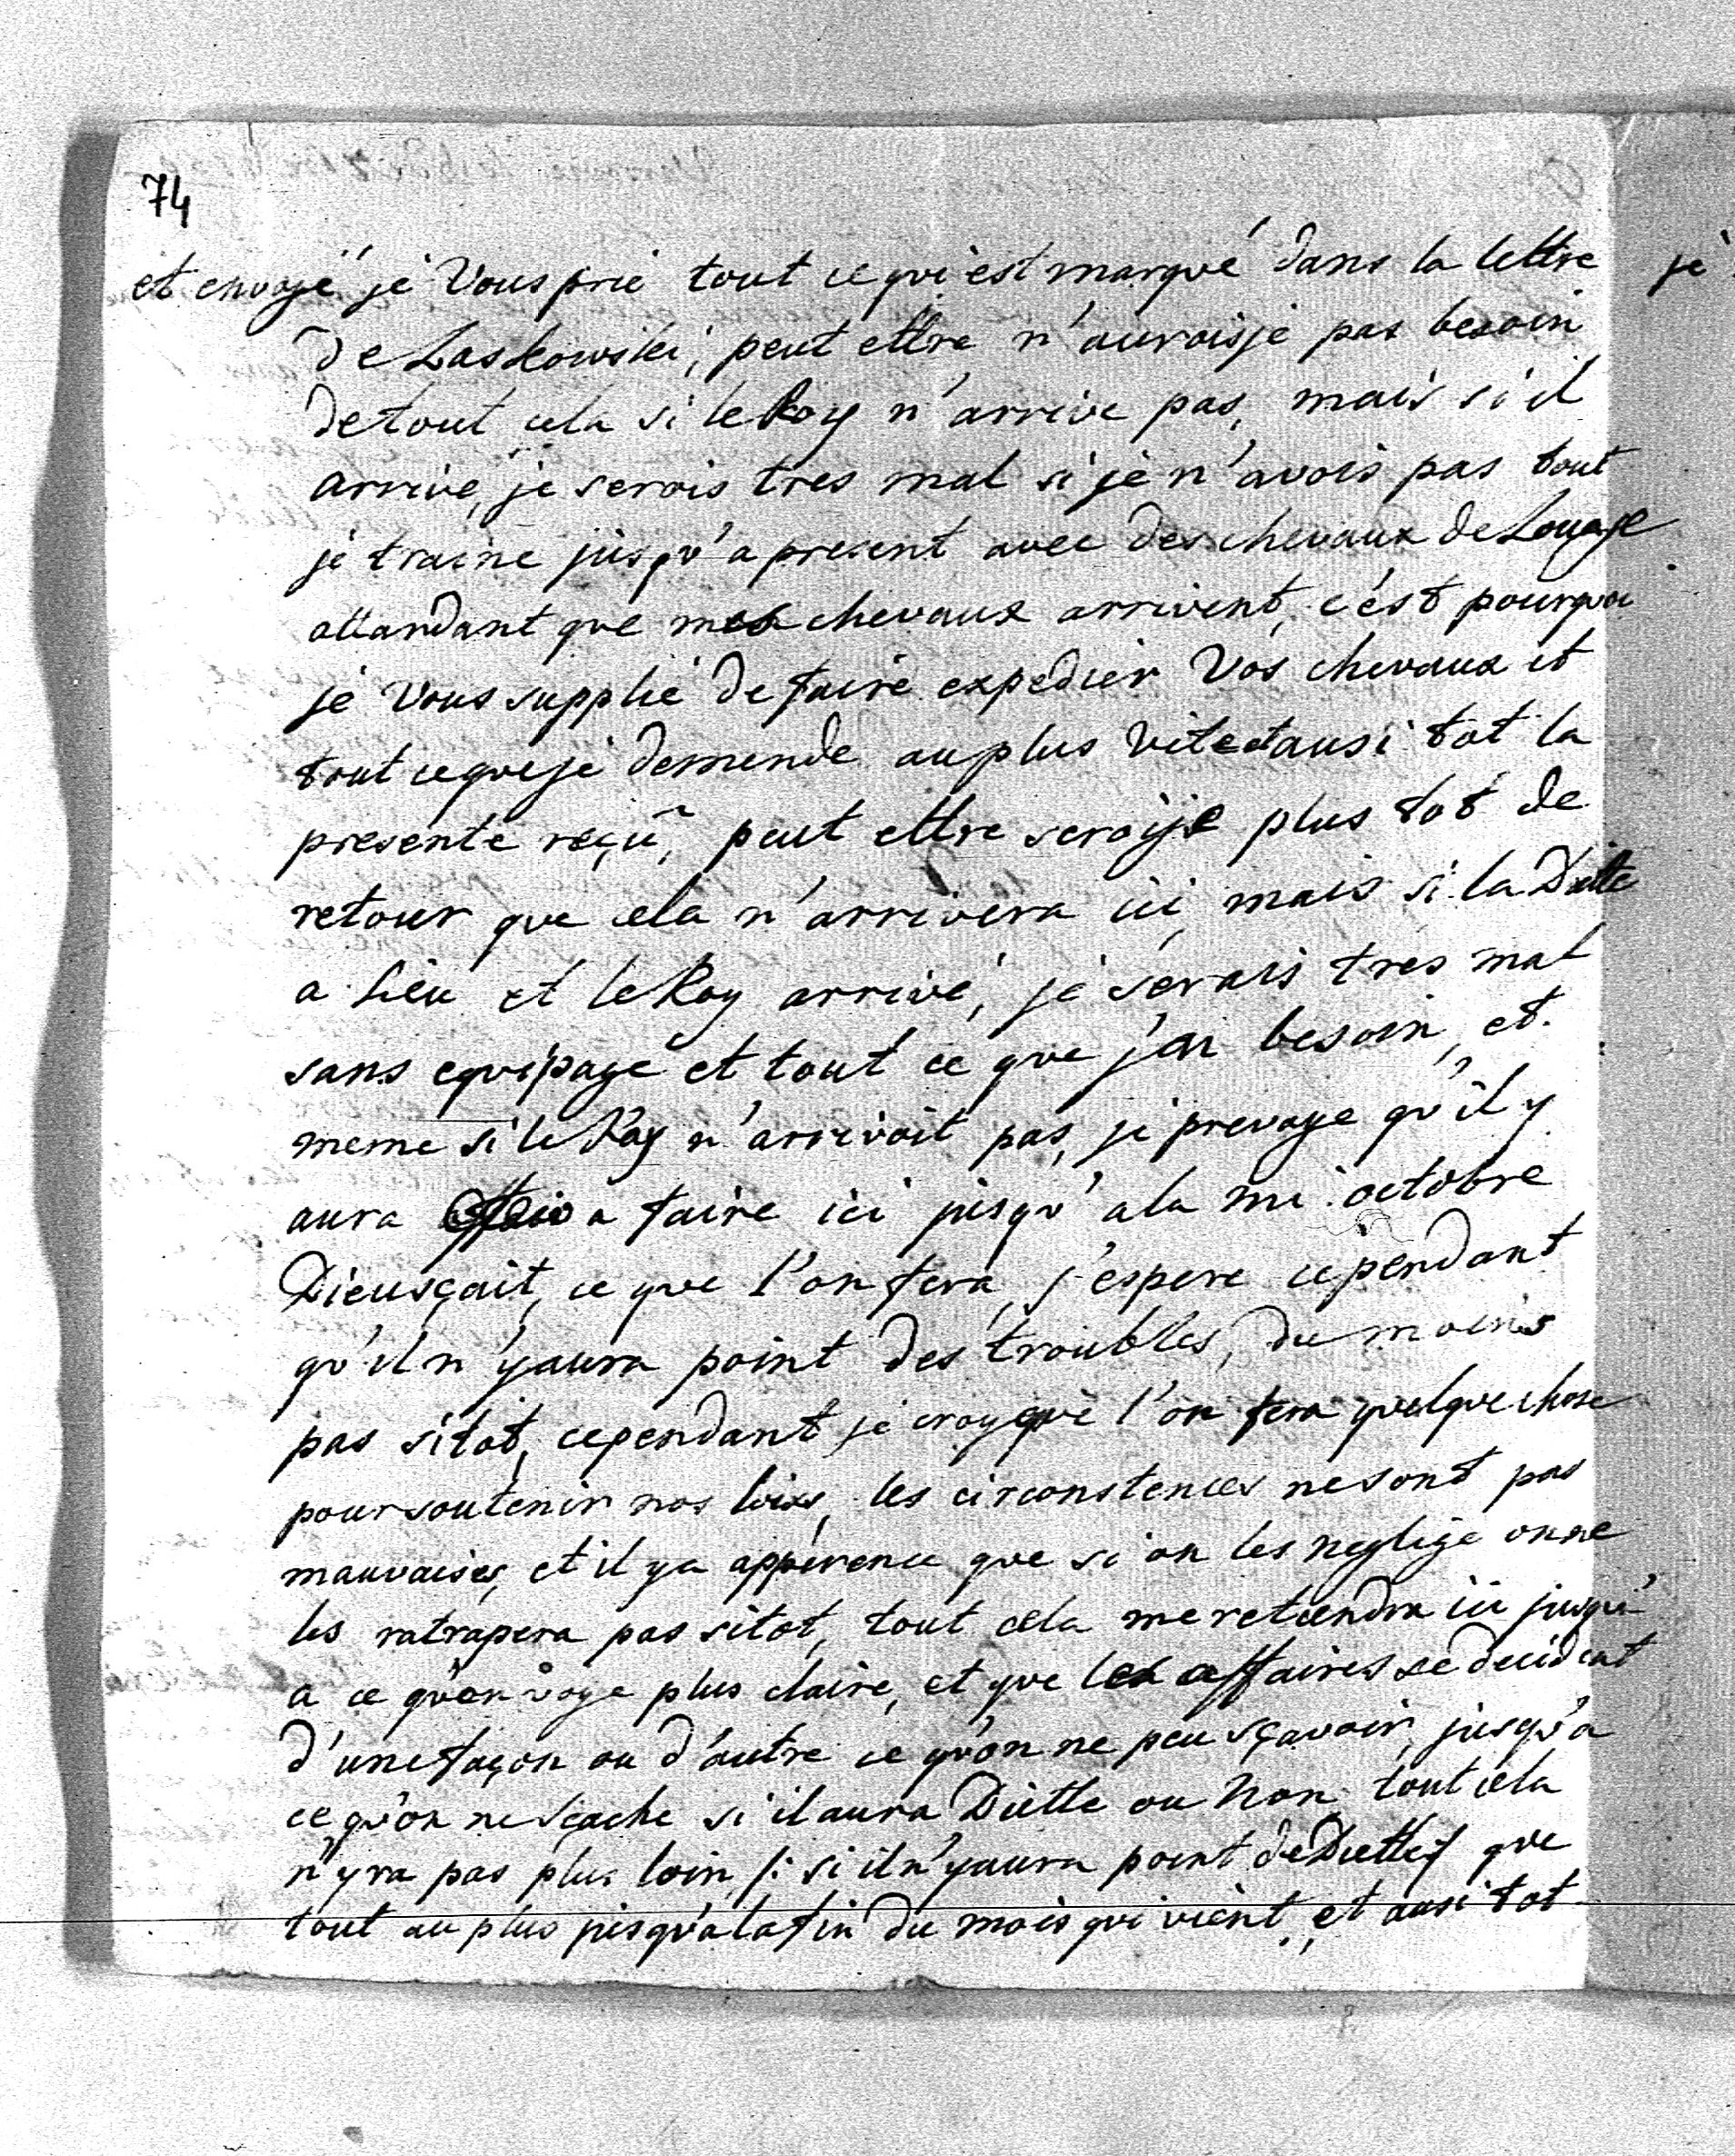 74
et envoyé je Vous prie tout ce qui est marqué dans la lettre
de Laskowski, peut ettre n'auroisje pas besoin
de tout cela si le Roy n'arrive pas, mais si il
arrive, je serois tres mal si je n'avois pas tout
je traine jusqu'a present avec des chevaux de Louage
attandant que mes chevaux arrivent, c'est pourquoi
je Vous supplie de faire expedier Vos chevaux et
tout ce que je demende au plus Vite et ausi tot la
presente reçû, peut ettre seroije plus tot de
retour que cela n'arrivera ici, mais si la Diette
a lieu et le Roy arrive, je serois tres mal
sans equipage et tout ce que j'ai besoin, et
meme si le Roy n'arrivoit pas, je prevoye qu'il y
aura a faire ici jusqu'a la mi octobre
Dieu sçait, ce que l'on fera, j'espere cependant
qu'il n'y aura point des troubles, du moins
pas sitot, cependant je croy que l'on fera quelque chose
pour soutenir nos loixs, les circonstences ne sont pas
mauvaises, et il y a apperence que si on les neglige on ne
les ratrapera pas sitot, tout cela me retiendra ici jusqu'
a ce qu'on voye plus claire, et que les affaires se decident
d'une façon ou d'autre ce qu'on ne peu sçavoir, jusqu'a
ce qu'on ne sçache si il aura Diette ou Non tout cela
n'yra pas plus loin /: si il n'y aura point de Diette :/ que
tout au plus jusqu'a la fin du mois qui vient, et ausi tot
je